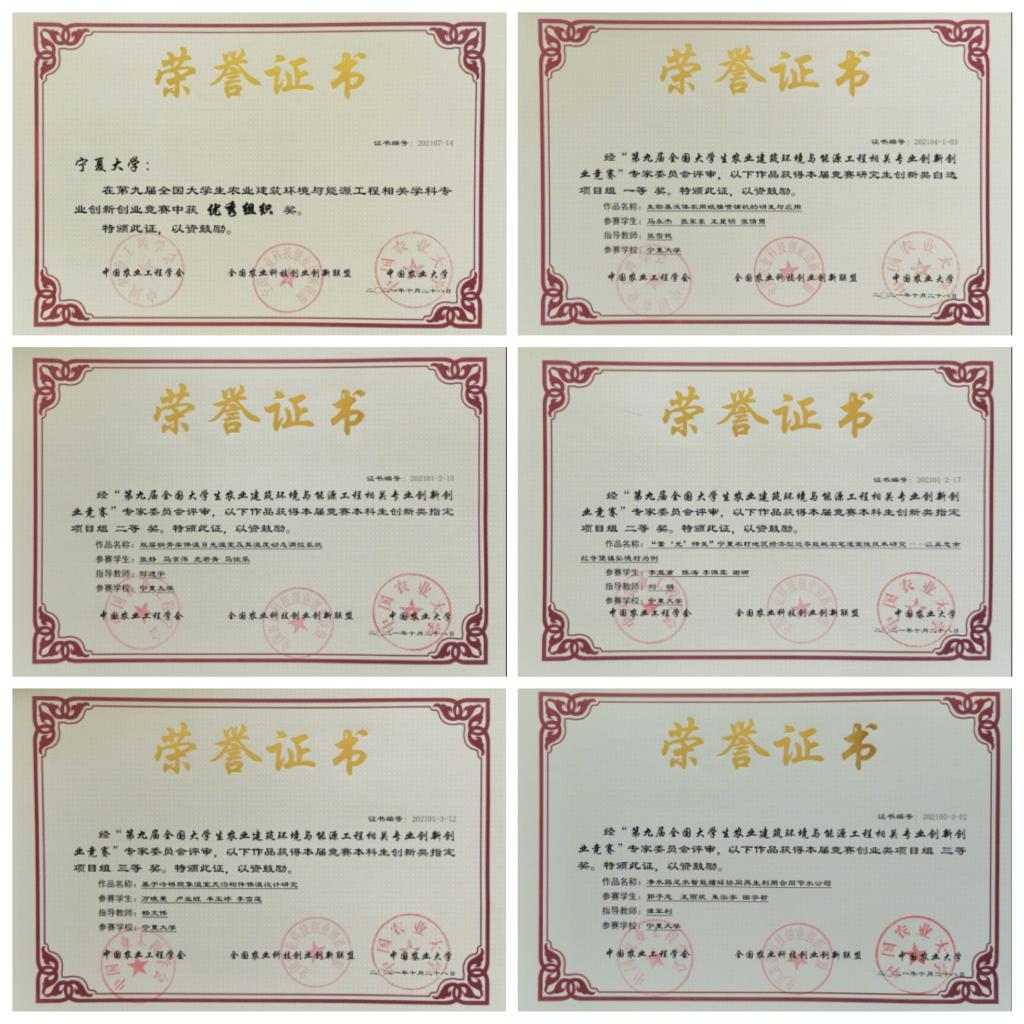 荣誉证书
证书编号：202107-14
宁夏大学：
在第九届全国大学生农业建筑环境与能源工程相关学科专
业创新创业竞赛中获 优秀组织 奖。
特颁此证，以资鼓励。
中国农业工程学会 全国农业科技创业创新联盟 中国农业大学
二〇二一年十月二十八日
荣誉证书
证书编号：202104-1-03
经“第九届全国大学生农业建筑环境与能源工程相关专业创新创
业竞赛”专家委员会评审，以下作品获得本届竞赛研究生创新类自选
项目组 一等 奖。特颁此证，以资鼓励。
作品名称：生物基液体农用地膜喷铺机的研发与应用
参赛学生：马永杰 张家豪 王星明 张倩男
指导教师：张雪艳
参赛学校：宁夏大学
中国农业工程学会 全国农业科技创业创新联盟 中国农业大学
二〇二一年十月二十八日
荣誉证书
证书编号：202101-2-10
经“第九届全国大学生农业建筑环境与能源工程相关专业创新创
业竞赛”专家委员会评审，以下作品获得本届竞赛本科生创新类指定
项目组 二等 奖。特颁此证，以资鼓励。
作品名称：双层钢骨架保温日光温室及其温度动态调控系统
参赛学生：张婷 马京萍 虎若青 马佳乐
指导教师：何进宇
参赛学校：宁夏大学
中国农业工程学会 全国农业科技创业创新联盟 中国农业大学
二〇二一年十月二十八日
荣誉证书
证书编号：202101-2-17
经“第九届全国大学生农业建筑环境与能源工程相关专业创新创
业竞赛”专家委员会评审，以下作品获得本届竞赛本科生创新类指定
项目组 二等 奖。特颁此证，以资鼓励。
作品名称：宁夏农村地区经济型近零能耗农宅适宜性技术研究——以吴忠市
红寺堡镇弘德村为例
参赛学生：李佩雯 谢娜
指导教师：刘 娟
参赛学校：宁夏大学
中国农业工程学会 全国农业科技创业创新联盟 中国农业大学
二〇二一年十月二十八日
荣誉证书
证书编号：202101-3-12
经“第九届全国大学生农业建筑环境与能源工程相关专业创新创
业竞赛”专家委员会评审，以下作品获得本届竞赛本科生创新类指定
项目组 三等 奖。特颁此证，以资鼓励。
作品名称：基于冷桥现象温室天沟构件保温设计研究
参赛学生：万晓曼 卢业旺 牟玉婷 李雪莲
指导教师：杨文伟
参赛学校：宁夏大学
中国农业工程学会 全国农业科技创业创新联盟 中国农业大学
二〇二一年十月二十八日
荣誉证书
证书编号：202105-3-02
经“第九届全国大学生农业建筑环境与能源工程相关专业创新创
业竞赛”专家委员会评审，以下作品获得本届竞赛创业类项目组 三等
奖。特颁此证，以资鼓励。
作品名称：净水器尾水智能循环协同再生利用合同节水公司
参赛学生：郭子龙 王雨欣 朱泓宇 田宇哲
指导教师：谭军利
参赛学校：宁夏大学
中国农业工程学会 全国农业科技创业创新联盟 中国农业大学
二〇二一年十月二十八日